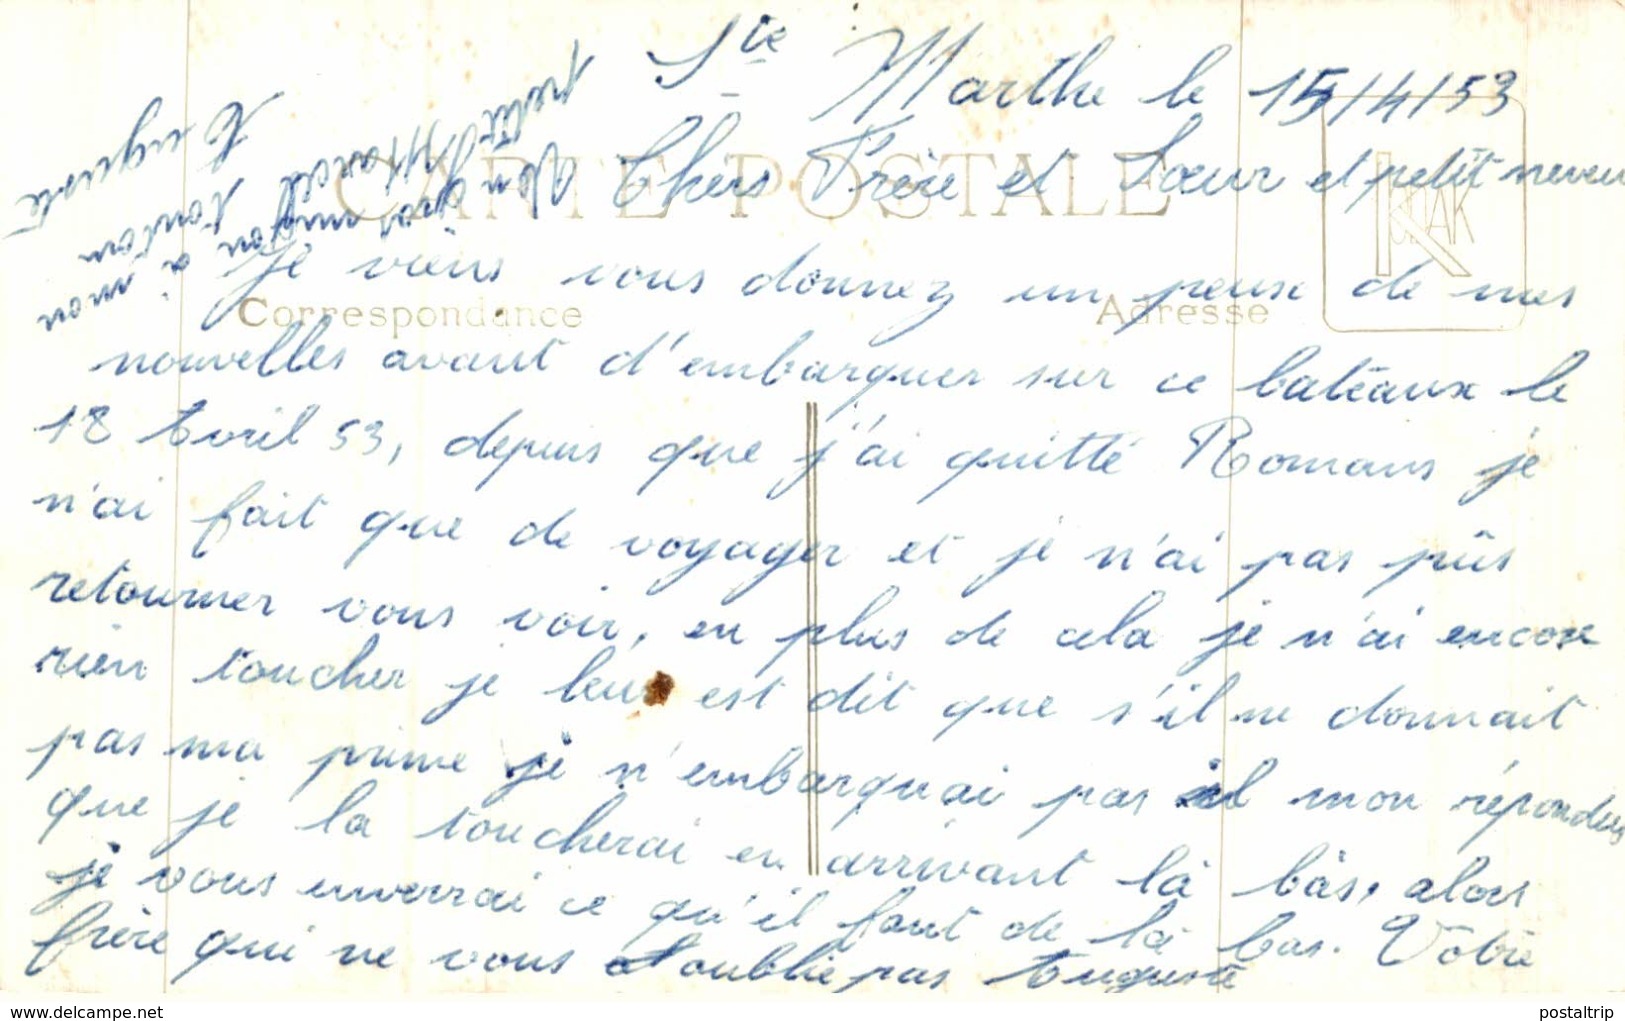 Ste Marthe le 15/4/53
CARTE POSTALE
Chers Frère et Sœur et petit neveu
KODAK
je viens vous donnez un peux de mes
Correspondance
Adresse
nouvelles avant d'embarquer sur ce batéaux le
18 Avril 53, depuis que j'ai quitté Romans je
n'ai fait que de voyager et je n'ai pas pûs
retourner vous voir, en plus de cela je n'ai encore
rien toucher je leur est dit que s'il ne donnait
pas ma prime je n'embarquai pas il mon répondus
que je la toucherai en arrivant là bàs, alors
je vous enverrai ce qu'il faut de là bas. Vôtre
frère qui ne vous oublie pas Auguste
Bon gros
à mon petit Marcel
mon tonton
Auguste
www.delcampe.net
postaltrip